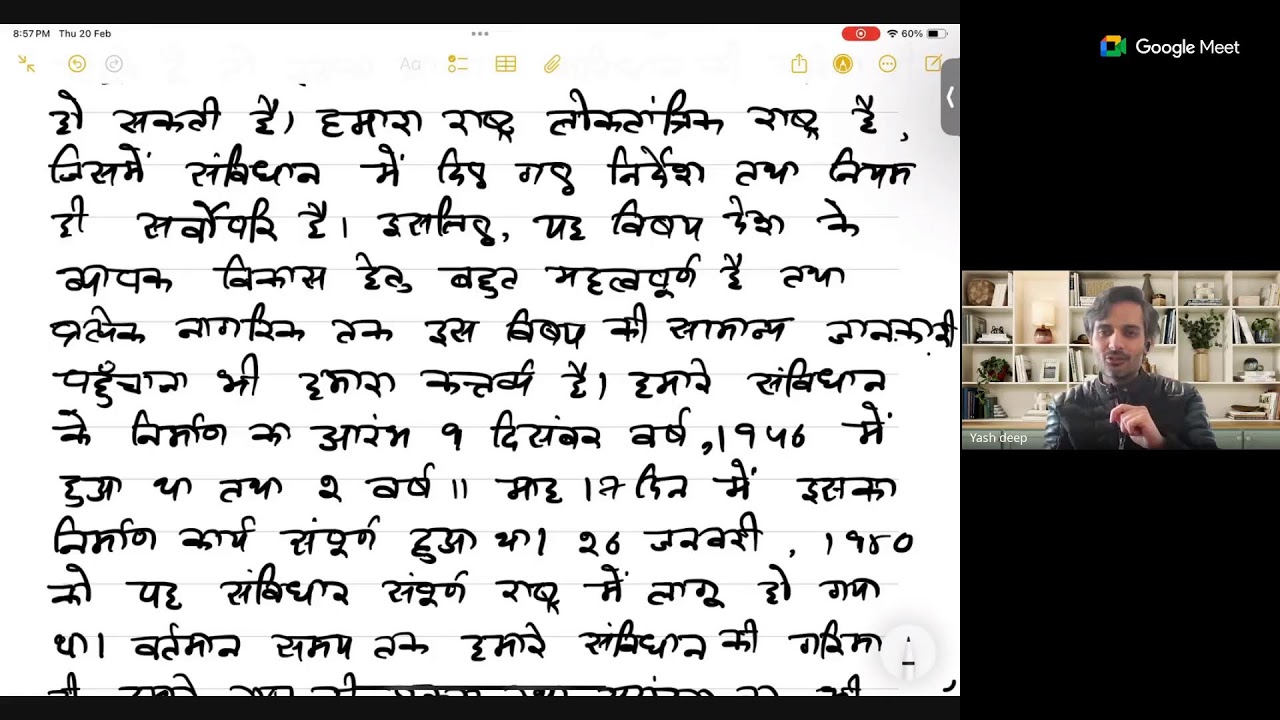 8:57 PM Thu 20 Feb
60%
Aa
हो सकती है। हमारा राष्ट्र लोकतांत्रिक राष्ट्र है,
जिसमें संविधान में दिए गए निर्देश तथा नियम
ही सर्वोपरि है। इसलिए, यह विषय देश के
व्यापक विकास हेतु बहुत महत्वपूर्ण है तथा
प्रत्येक नागरिक तक इस विषय की सामान्य जानकारी
पहुँचाना भी हमारा कर्त्तव्य है। हमारे संविधान
के निर्माण का आरंभ 9 दिसंबर वर्ष, 1946 में
हुआ था तथा 2 वर्ष 11 माह 17 दिन में इसका
निर्माण कार्य संपूर्ण हुआ था। 26 जनवरी, 1950
को यह संविधान संपूर्ण राष्ट्र में लागू हो गया
था। वर्तमान समय तक हमारे संविधान की गरिमा
Google Meet
Yash deep